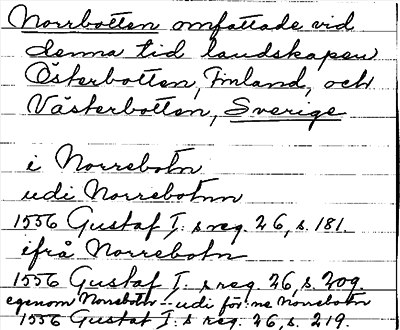 Norrbotten omfattade vid
denna tid landskapen
Österbotten, Finland, och
Västerbotten, Sverige
i Norrebotn
udi Norrebotnn
1556 Gustaf I:s reg. 26, s. 181.
ifrå Norrebotn
1556 Gustaf I:s reg. 26, s. 209
egenom Norrebotn - udi för:ne Norrebotn
1556 Gustaf I:s reg. 26, s. 219.